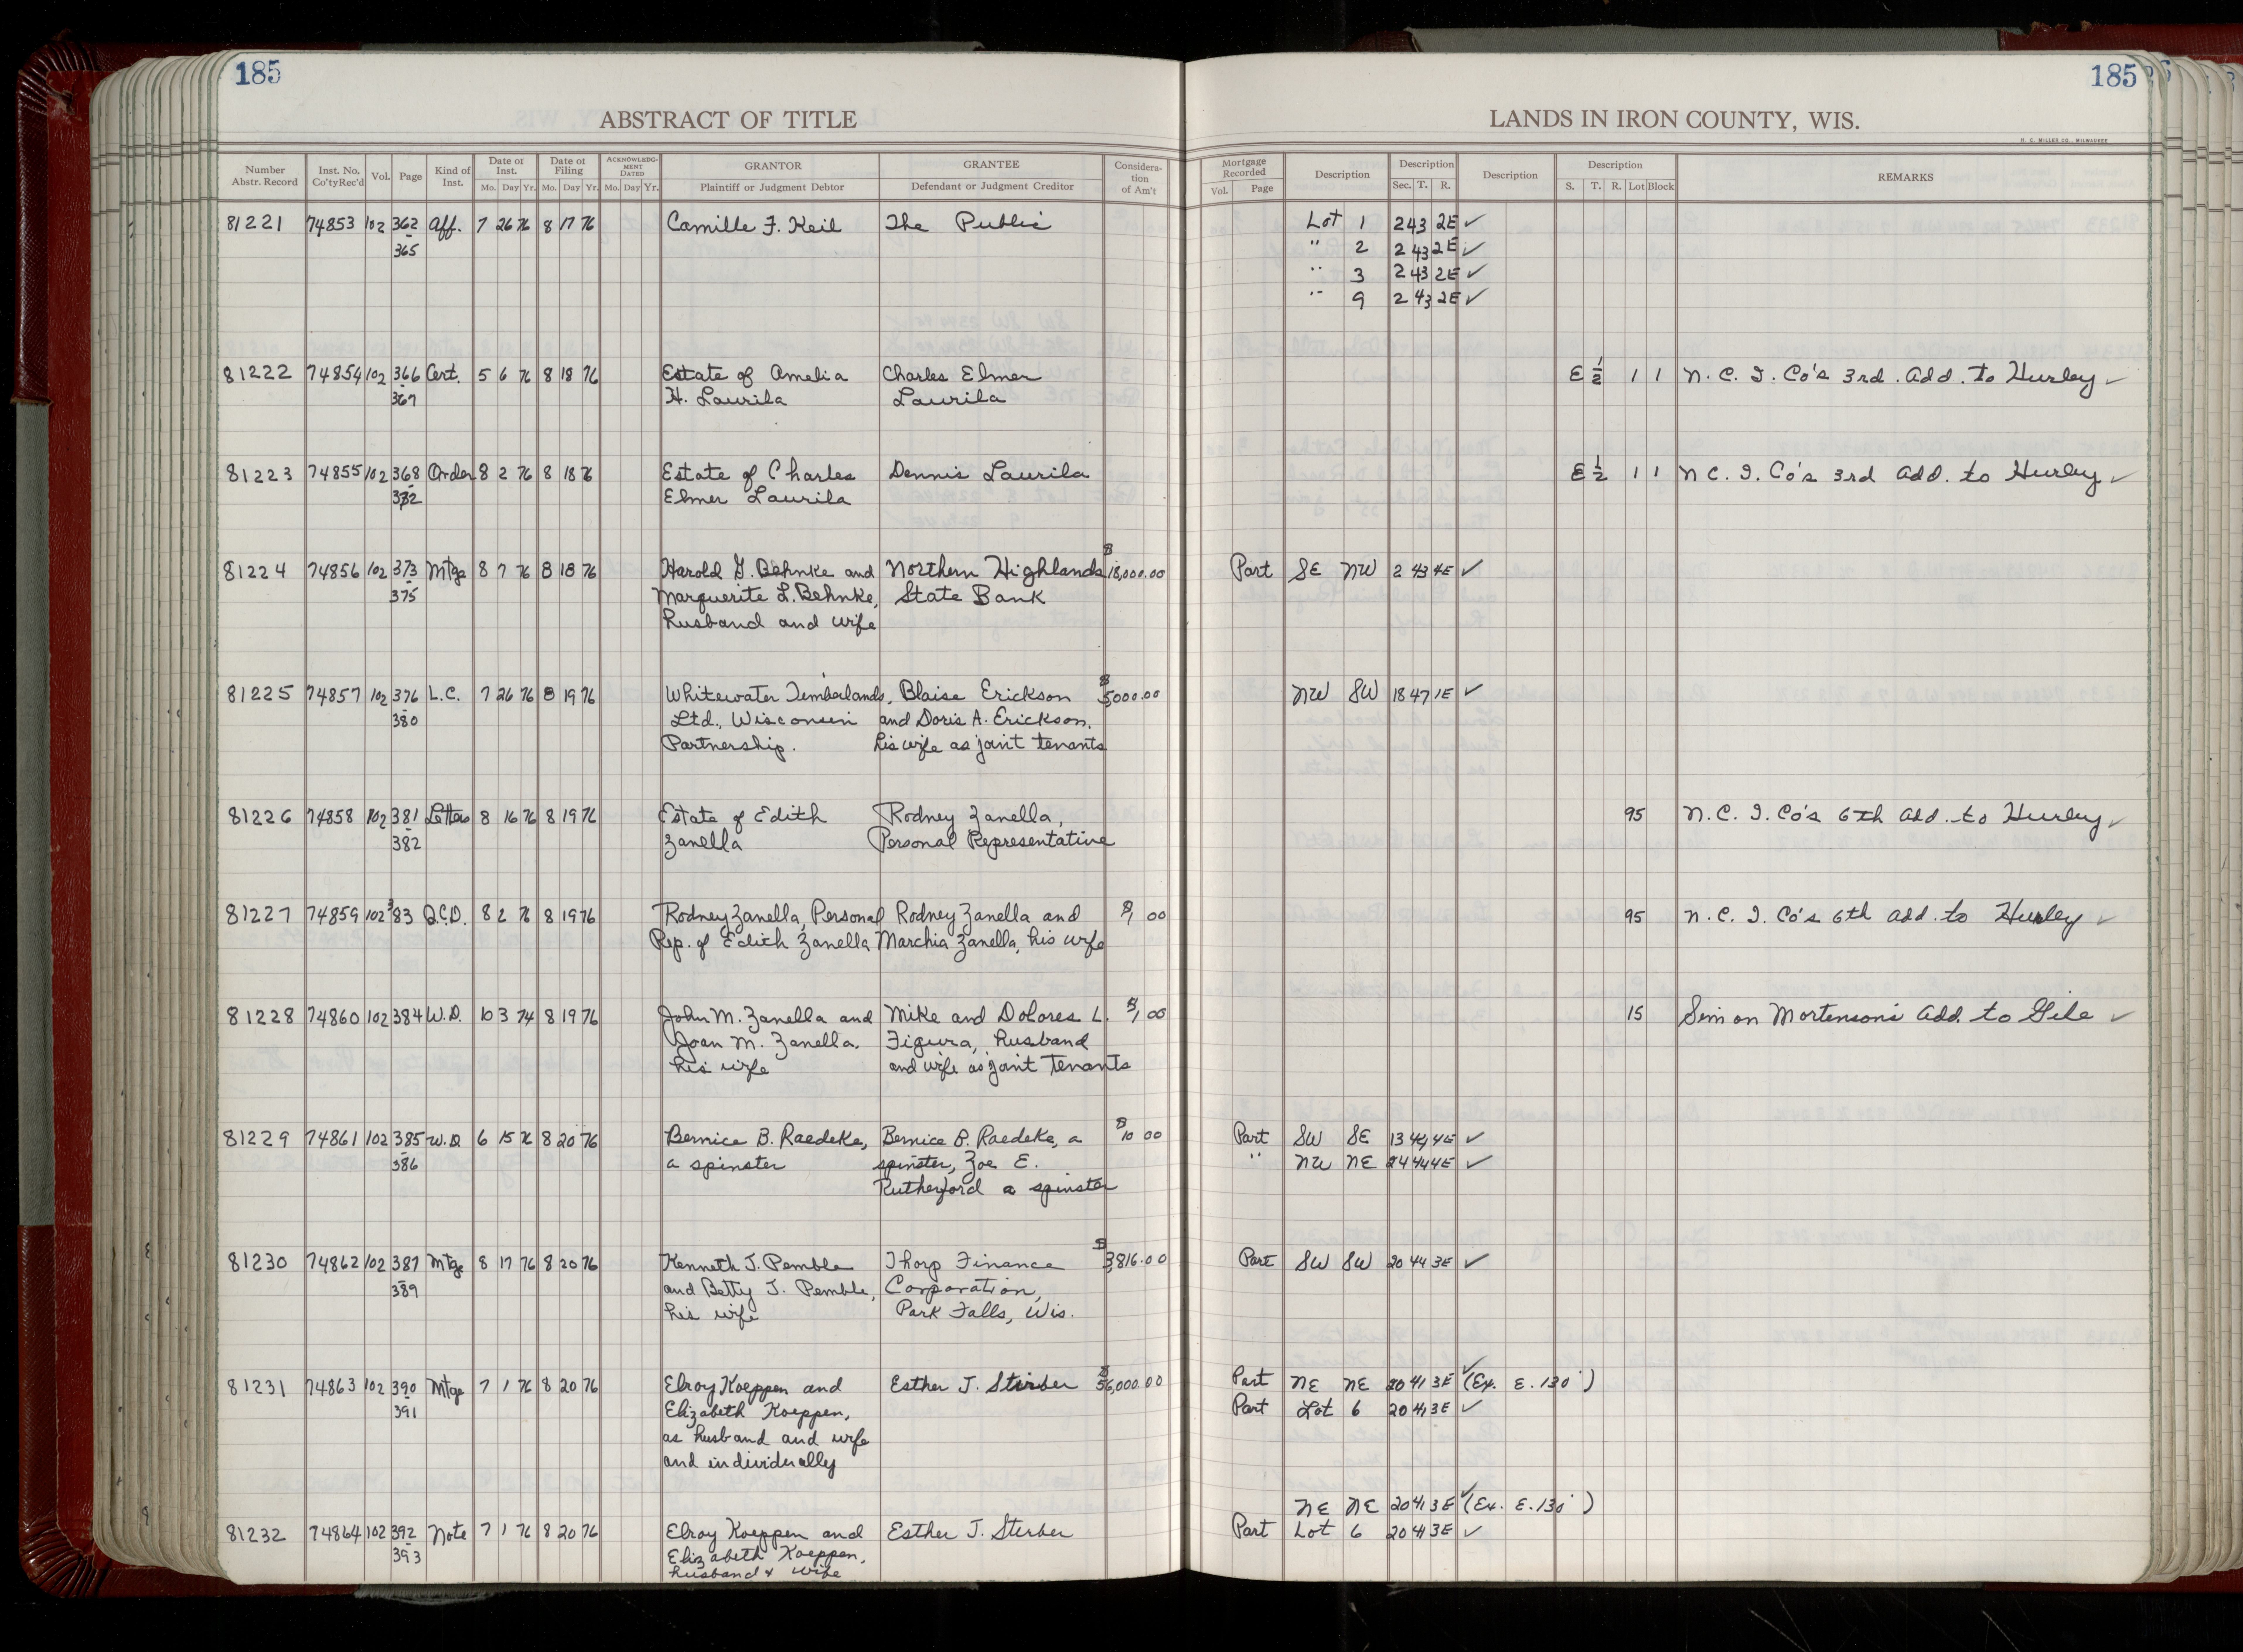 185
185
ABSTRACT OF TITLE
LANDS IN IRON COUNTY, WIS.
H. C. MILLER CO., MILWAUKEE
Number Abstr. Record | Inst. No. Co'ty Rec'd | Vol. | Page | Kind of Inst. | Date of Inst. Mo. Day Yr. | Date of Filing Mo. Day Yr. | ACKNOWLEDGMENT DATED Mo. Day Yr. | GRANTOR Plaintiff or Judgment Debtor | GRANTEE Defendant or Judgment Creditor | Consideration of Am't | Mortgage Recorded Vol. Page | Description | Description Sec. T. R. | Description | Description S. T. R. Lot Block | REMARKS
81221 74853 102 362 Aff. 7 26 76 8 17 76 Camille F. Keil The Public Lot 1 2 43 2E ✓
- 365 " 2 2 43 2E ✓
" 3 2 43 2E ✓
" 9 2 43 2E ✓
81222 74854 102 366 Cert. 5 6 76 8 18 76 Estate of Amelia Charles Elmer E 1/2 1 1 N. C. I. Co's 3rd. Add. to Hurley ✓
- 367 H. Laurila Laurila
81223 74855 102 368 Order 8 2 76 8 18 76 Estate of Charles Dennis Laurila E 1/2 1 1 N C. I. Co's 3rd Add. to Hurley ✓
- 372 Elmer Laurila
81224 74856 102 373 Mtge 8 7 76 8 18 76 Harold G. Behnke and Northern Highlands $18,000.00 Part SE NW 2 43 4E ✓
- 375 Marguerite L. Behnke, State Bank
husband and wife
81225 74857 102 376 L.C. 7 26 76 8 19 76 Whitewater Timberlands, Blaise Erickson $5,000.00 NW SW 18 47 1E ✓
- 380 Ltd., Wisconsin and Doris A. Erickson,
Partnership. his wife as joint tenants
81226 74858 102 381 Letters 8 16 76 8 19 76 Estate of Edith Rodney Zanella, 95 N. C. I. Co's 6th Add. to Hurley ✓
- 382 Zanella Personal Representative
81227 74859 102 383 Q.C.D. 8 2 76 8 19 76 Rodney Zanella, Personal Rodney Zanella and $1 00 95 N. C. I. Co's 6th Add. to Hurley ✓
Rep. of Edith Zanella Marchia Zanella, his wife
81228 74860 102 384 W.D. 10 3 74 8 19 76 John M. Zanella and Mike and Dolores L. $1 00 15 Simon Mortenson's Add. to Gile ✓
Joan M. Zanella, Figura, husband
his wife and wife as joint tenants
81229 74861 102 385 W.D 6 15 76 8 20 76 Bernice B. Raedeke, Bernice B. Raedeke, a $10 00 Part SW SE 13 44 4E ✓
- 386 a spinster spinster, Zoe E. " NW NE 24 44 4E ✓
Rutherford a spinster
81230 74862 102 387 Mtge 8 17 76 8 20 76 Kenneth J. Pemble Thorp Finance $3,816.00 Part SW SW 20 44 3E ✓
- 389 and Betty J. Pemble, Corporation,
his wife Park Falls, Wis.
81231 74863 102 390 Mtge 7 1 76 8 20 76 Elroy Koeppen and Esther J. Sterber $56,000.00 Part NE NE 20 41 3E ✓ (Ex. E. 130')
- 391 Elizabeth Koeppen, Part Lot 6 20 41 3E ✓
as husband and wife
and individually
NE NE 20 41 3E ✓ (Ex. E. 130')
81232 74864 102 392 Note 7 1 76 8 20 76 Elroy Koeppen and Esther J. Sterber Part Lot 6 20 41 3E ✓
- 393 Elizabeth Koeppen,
husband & wife